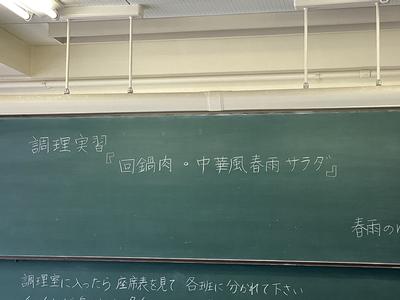 調理実習
『回鍋肉・中華風春雨サラダ』
春雨の
調理室に入ったら 座席表を見て 各班に分かれて下さい